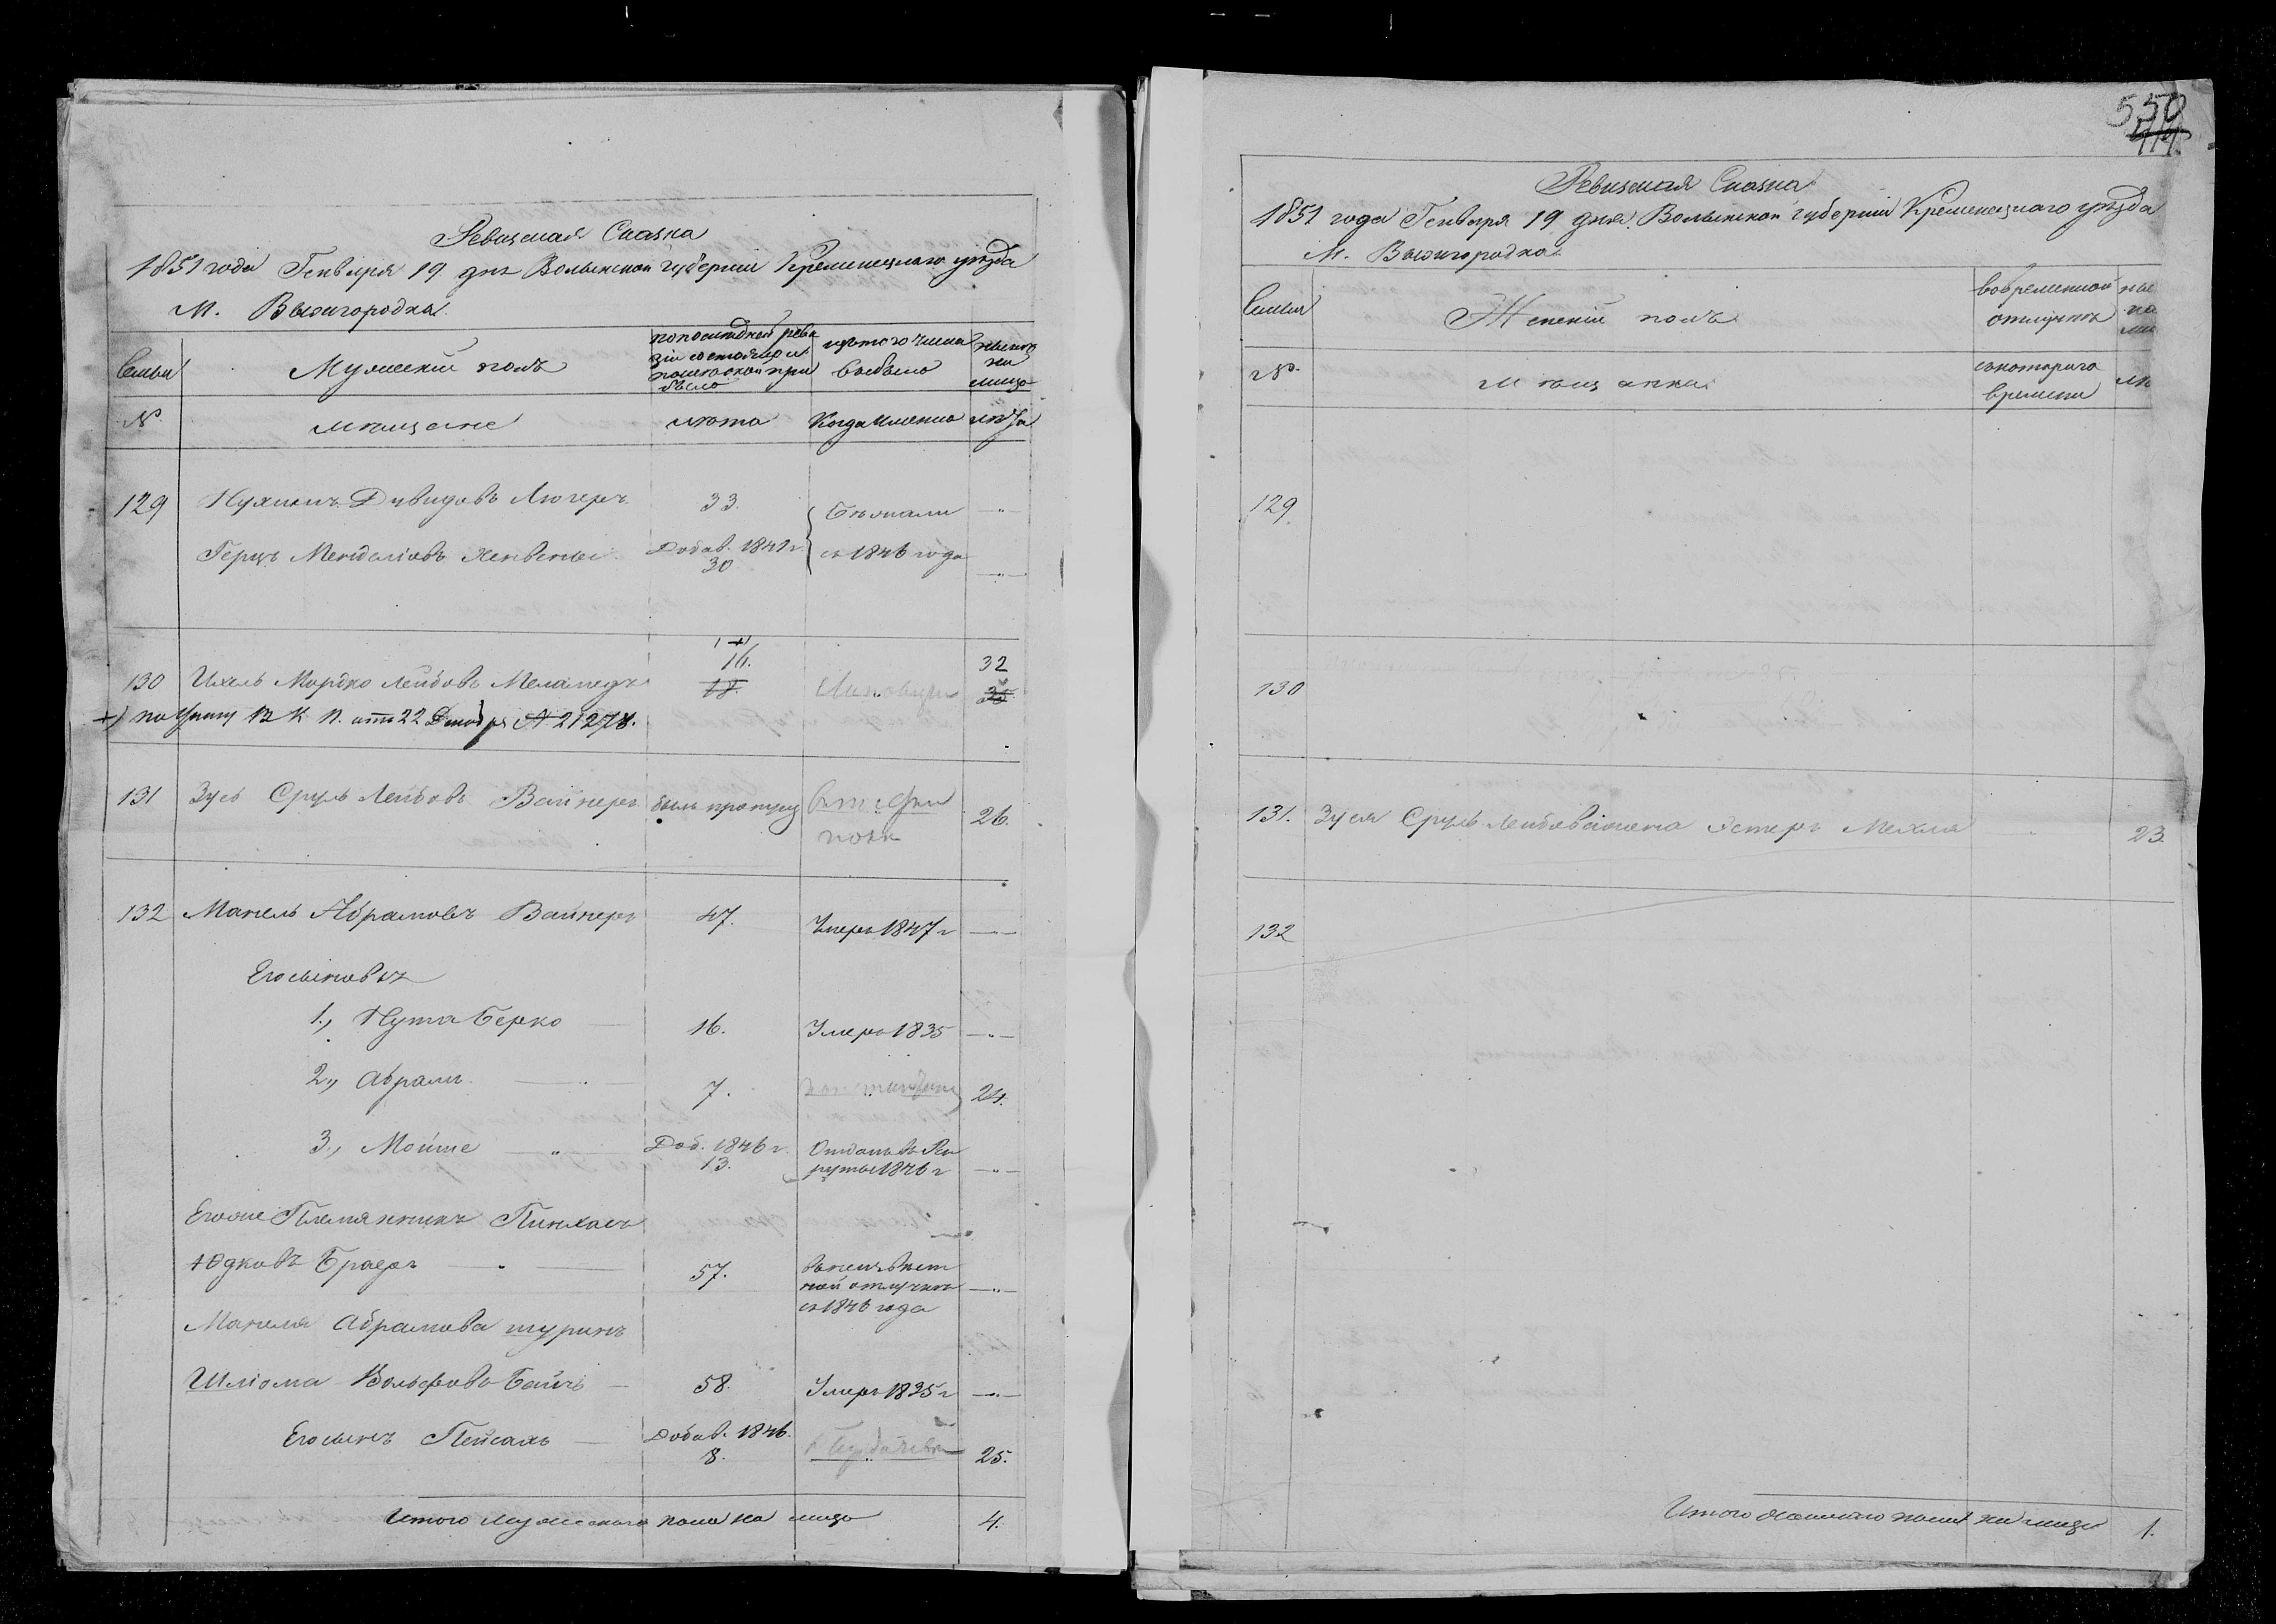 Ревизская Сказка
1851 года Генваря 19 дня Волынской губернии Кременецкаго уезда
М. Вышгородка
Семьи
Мужеский полъ
по последней реви
зіи состояло и
после оной при
было
изъ того числа
выбыло
ныне
на
лицо
№
мещане
лета
Когда именно
лета
129 Нухимъ Дувидовъ 33. Бежали „
Герцъ Менделіовъ Добав. 1841 г. 30 съ 1846 года „
130 Ихель Мортко Лейбовъ Меламедъ 16. 18. 32
+) по Указу В. К. П. отъ 22 № 21278.
131 Зусь Сруль Лейбовъ Вайнеръ былъ пропущ 26.
132 Манель Абрамовъ Вайнеръ 47. Умеръ 1847 г —
Его сыновья
1., Нута Берко 16. Умеръ 1835 — „ —
2., Абрамъ — „ — 7. 24.
3., Мойше — „ Доб. 1846 г. 13. Отданъ въ Рек
руты 1846 г — „ —
Егоже Племянникъ Пинхасъ
Юдковъ Браеръ — „ — 57. въ неизвест
ной отлучке — „ —
съ 1846 года
Манеля Абрамова шуринъ
Шліома Вольфовъ 58. Умеръ 1835 г — „ —
Его сынъ Пейсахъ — Добав. 1846. 8. 25.
Итого мужескаго пола на лицо 4.
550
Ревизская Сказка
1851 года Генваря 19 дня Волынской губерніи Кременецкаго уезда
М. Вышгородка
Семьи
Женскій полъ
во временной
отлучке
ны
на
ли
№
мещанки
съ котораго
времени
ле
129
130
131. Зуся Сруль Лейбова жена Эстеръ 23.
132
Итого женскаго пола на лицо 1.